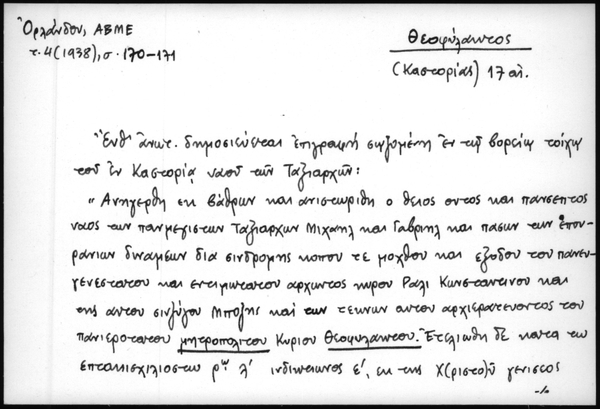 Ὀρλάνδου, ΑΒΜΕ
τ. 4 (1938), σ. 170-171
Θεοφύλακτος
(Καστορίας) 17 αἰ.
Ἔνθ' ἀνωτ. δημοσιεύεται ἐπιγραφή σωζομένη ἐν τῷ βορείῳ τοίχῳ
τοῦ ἐν Καστορίᾳ ναοῦ τῶν Ταξιαρχῶν:
"Ανηγερθη εκ βάθρων και ανιστωριθη ο θειος ουτος και πανσεπτος
ναος των πανμεγιστων Ταξιαρχων Μιχαηλ και Γαβριηλ και πασων των ἐπου-
ρανιων δυναμεων δια σινδρομης κοπου τε μοχθου και εξοδου του πανευ-
γενεστατου και εντιμωτατου αρχωντος κυρου Ραλι Κωνσταντινου και
της αυτου σινζύγου Μποζης και των τεκνων αυτου αρχιερατευοντος του
πανιεροτατου μητροπολιτου Κυριου Θεοφυλακτου. Ετελιωθη δε κατα το
επτακισχιλιοστω ρῳ λ' ινδικτιωνος ε', εκ της Χ(ριστο)ῦ γενισεος
-/.